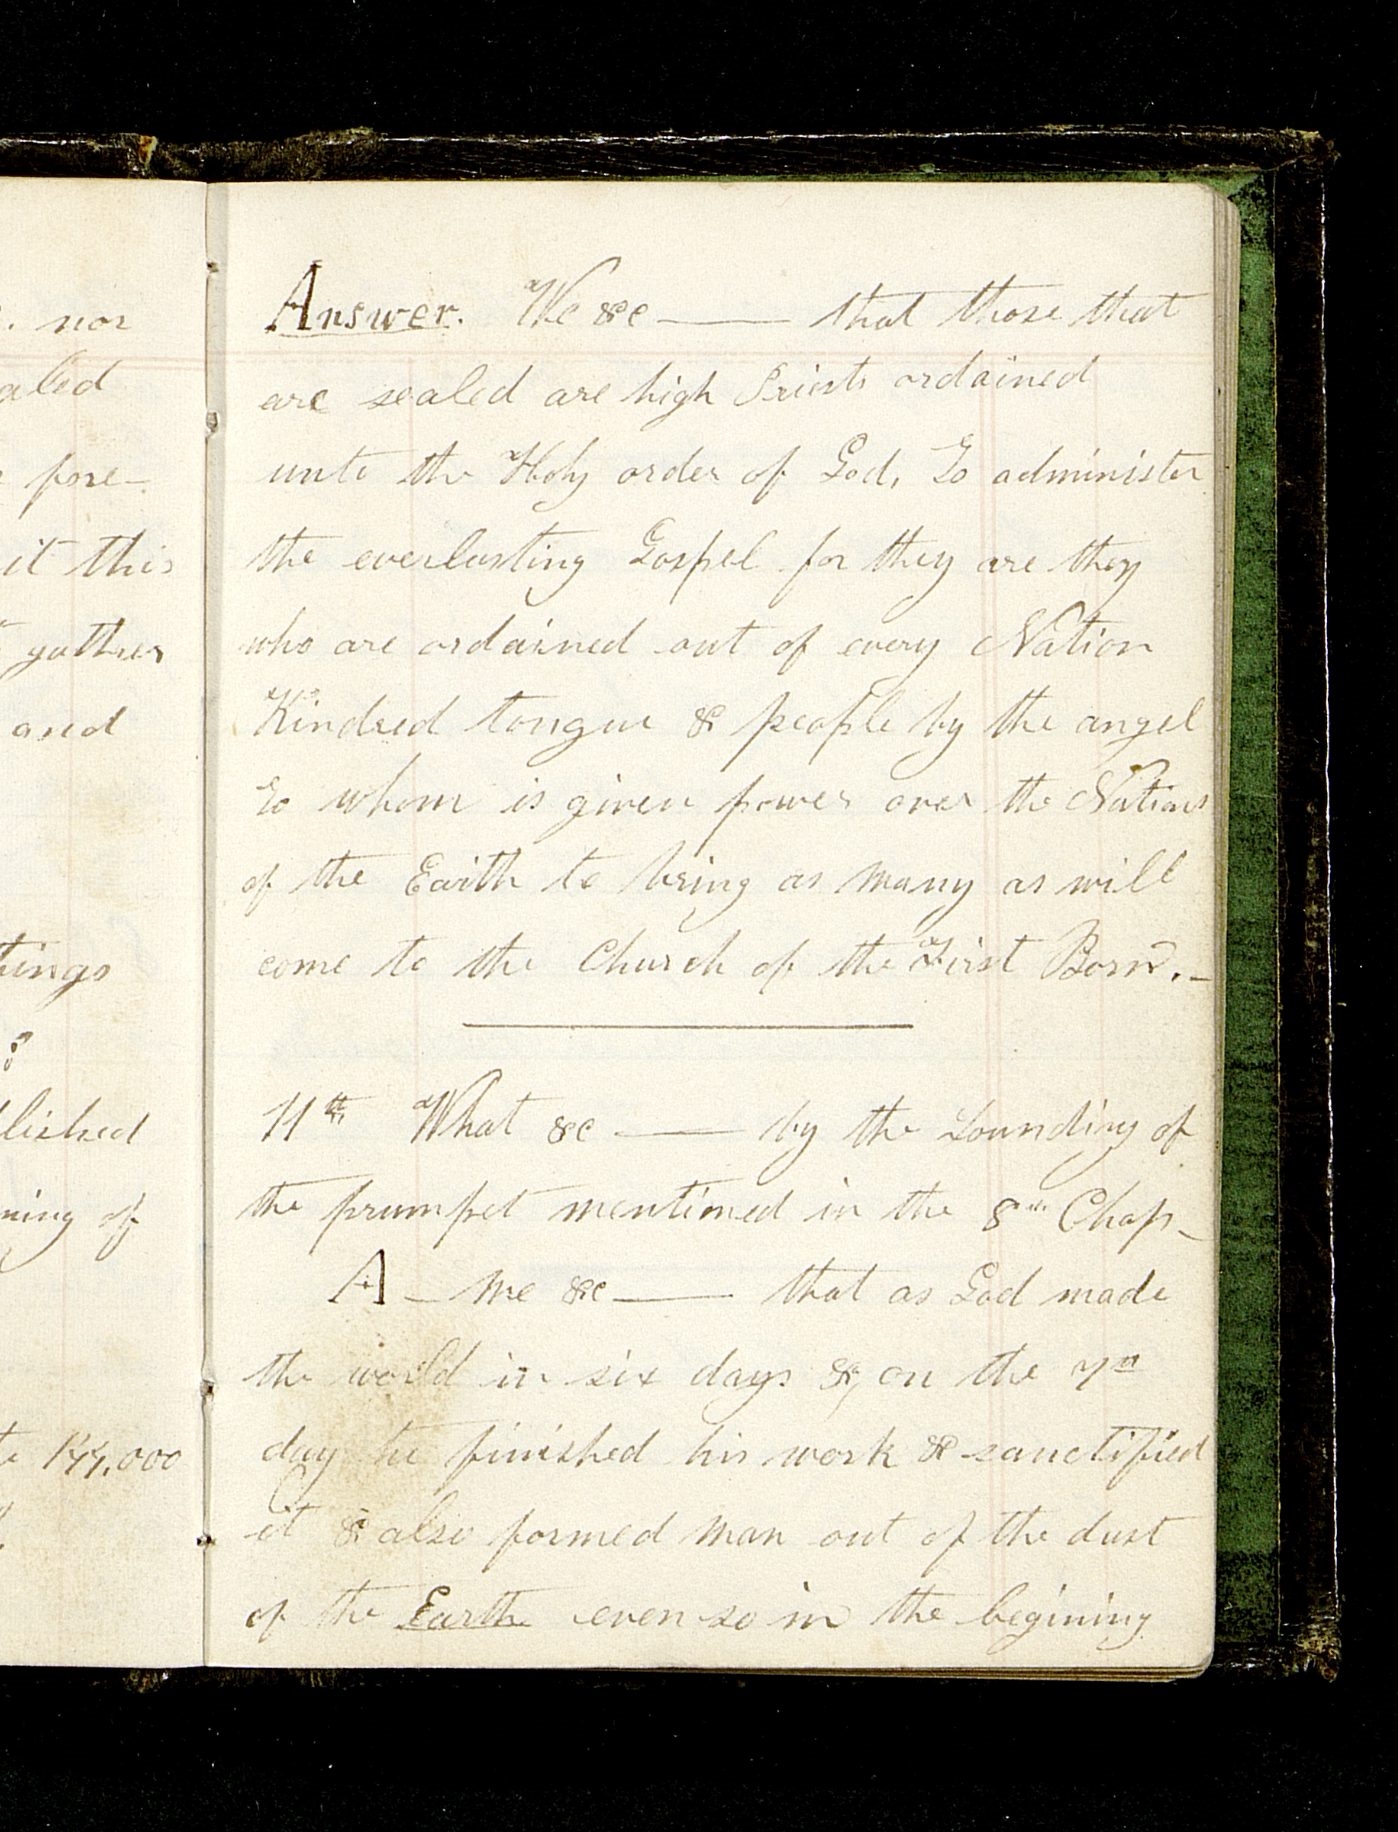 . nor
aled
fore-
it this
gather
and
tings
:?
lished
ning of
144,000
Answer. We &c —— that those that
are sealed are high Priests ordained
unto the Holy order of God, to administer
the everlasting Gospel for they are they
who are ordained out of every Nation
Kindred tongue & people by the angel
to whom is given power over the Nations
of the Earth to bring as many as will
come to the Church of the First Born.—
11th What &c —— by the Sounding of
the prumpet mentioned in the 8th Chap-
A – we &c —— that as God made
the world in six days &, on the 7th
day he finished his work & sanctified
it & also formed man out of the dust
of the Earth even so in the begining